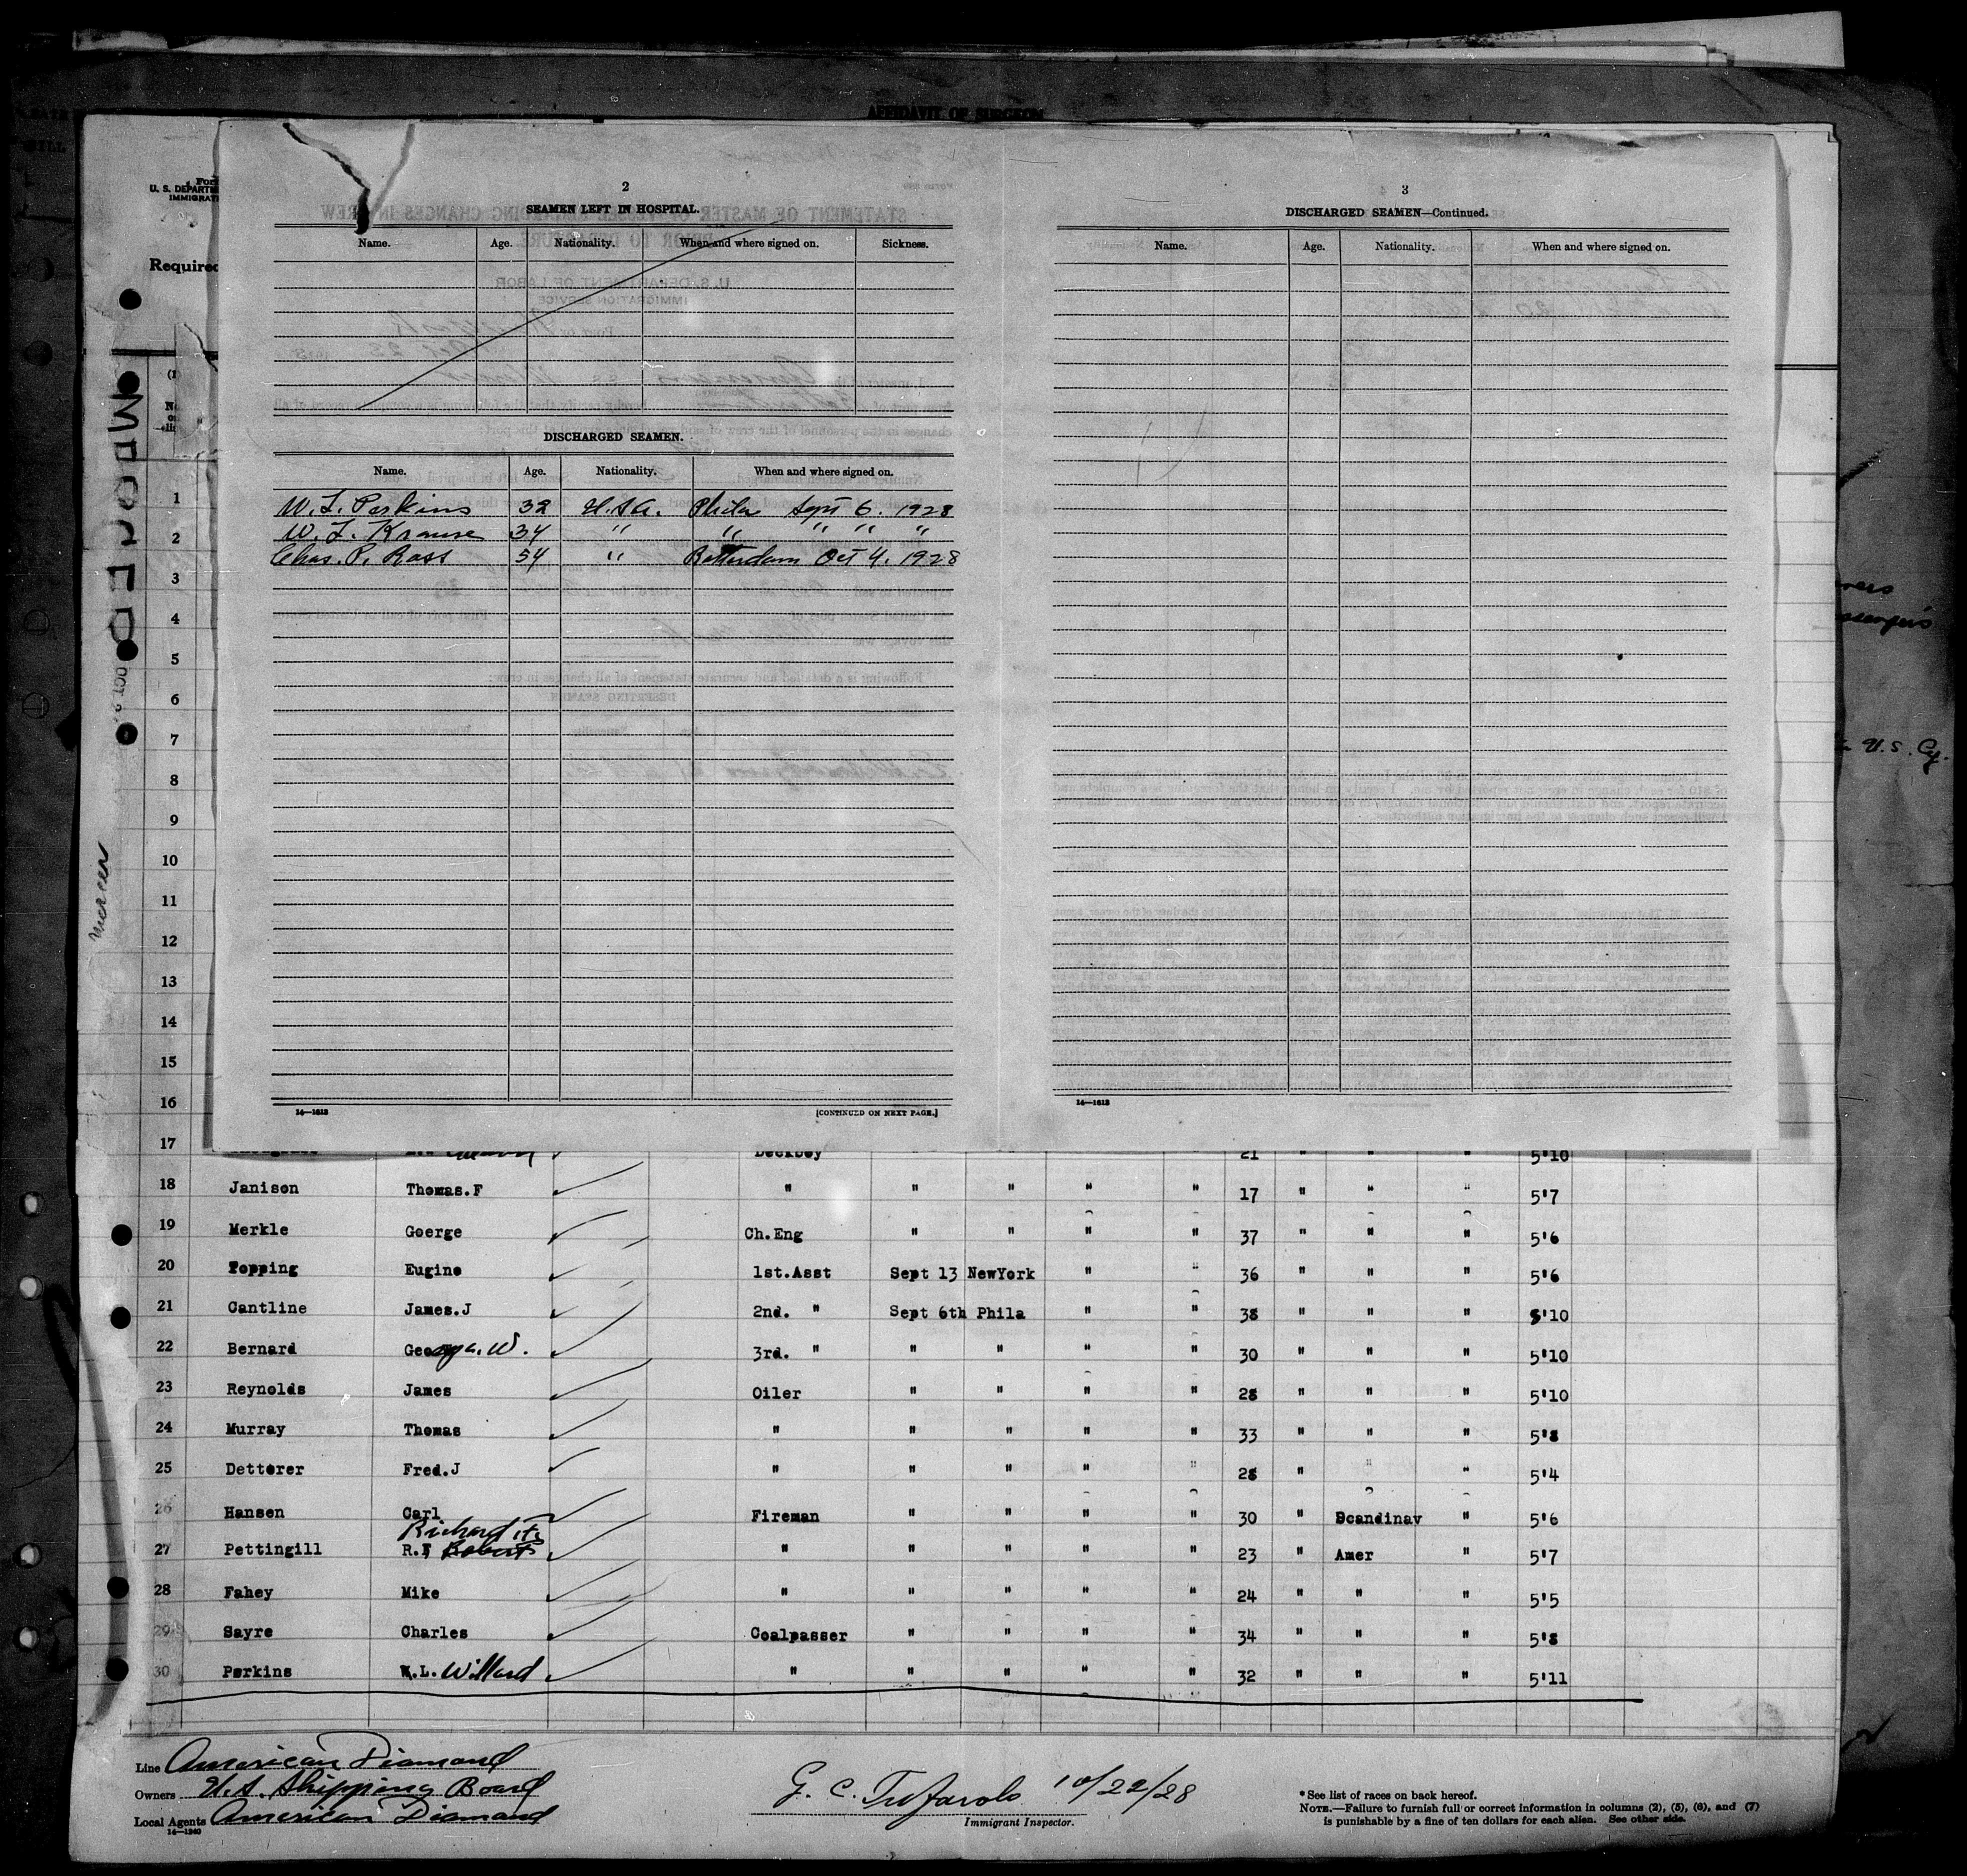 AFFIDAVIT OF SURGEON
U. S. DEPARTM
IMMIGRAT
Required
2
SEAMEN LEFT IN HOSPITAL.
Name. Age. Nationality. When and where signed on. Sickness.
DISCHARGED SEAMEN.
Name. Age. Nationality. When and where signed on.
W. L. Perkins 32 U.S.A. Phila Sept 6. 1928
W. L. Krause 34 " " " " "
Chas. P. Ross 54 " Rotterdam Oct 4. 1928
14—1613 [CONTINUED ON NEXT PAGE.]
3
DISCHARGED SEAMEN—Continued.
Name. Age. Nationality. When and where signed on.
14—1613
U.S. Cy.
1
2
3
4
5
6
7
8
9
10
11
12
13
14
15
16
17 Deckboy 21 " " " 5'10
18 Janison Thomas.F " " " " " 17 " " " 5'7
19 Merkle Goerge Ch.Eng " " " " 37 " " " 5'6
20 Topping Eugine 1st.Asst Sept 13 NewYork " " 36 " " " 5'6
21 Cantline James.J 2nd. " Sept 6th Phila " " 38 " " " 5'10
22 Bernard George. W. 3rd. " " " " " 30 " " " 5'10
23 Reynolds James Oiler " " " " 28 " " " 5'10
24 Murray Thomas " " " " " 33 " " " 5'8
25 Detterer Fred.J " " " " " 28 " " " 5'4
26 Hansen Carl Fireman " " " " 30 " Scandinav " 5'6
Richard
27 Pettingill R.F Robert " " " " " 23 " Amer " 5'7
28 Fahey Mike " " " " " 24 " " " 5'5
29 Sayre Charles Coalpasser " " " " 34 " " " 5'8
30 Perkins W.L. Willard " " " " " 32 " " " 5'11
Line American Diamond
Owners U.S. Shipping Board
Local Agents American Diamond
14—1240
G. C. Tufarolo 10/22/28
Immigrant Inspector.
* See list of races on back hereof.
NOTE.—Failure to furnish full or correct information in columns (2), (5), (6), and (7)
is punishable by a fine of ten dollars for each alien. See other side.